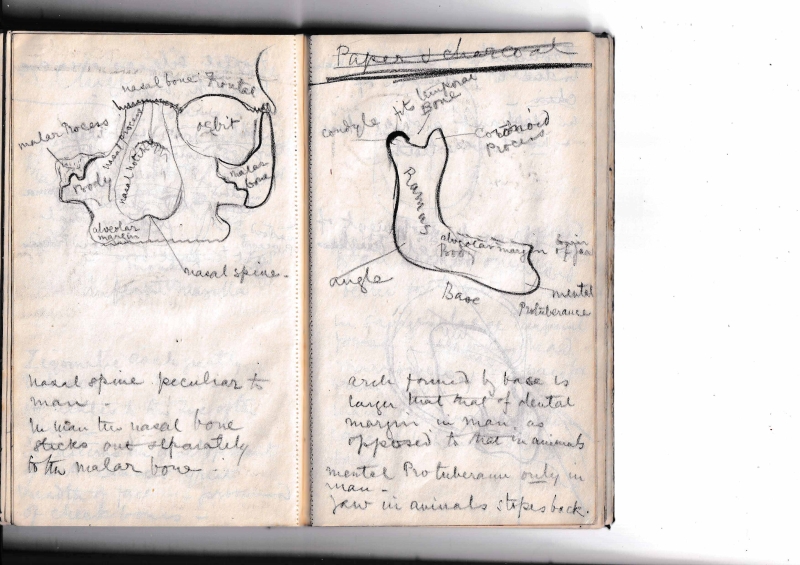 nasal bone Frontal
malar Process
nasal process
orbit
Body
nasal notch
malar
bone
alveolar
margin
nasal spine.
nasal spine peculiar to
man -
In man the nasal bone
sticks out separately
to the malar bone -
Paper & charcoal
to temporal
Bone
condyle
Coronoid
Process
Ramus
alveolar margin
Body
of jaw
angle
Base
mental
Protuberance
arch formed by base is
larger that that of dental
margin in man, as
opposed to that in animals
mental Protuberance only in
man -
Jaw in animals slopes back.